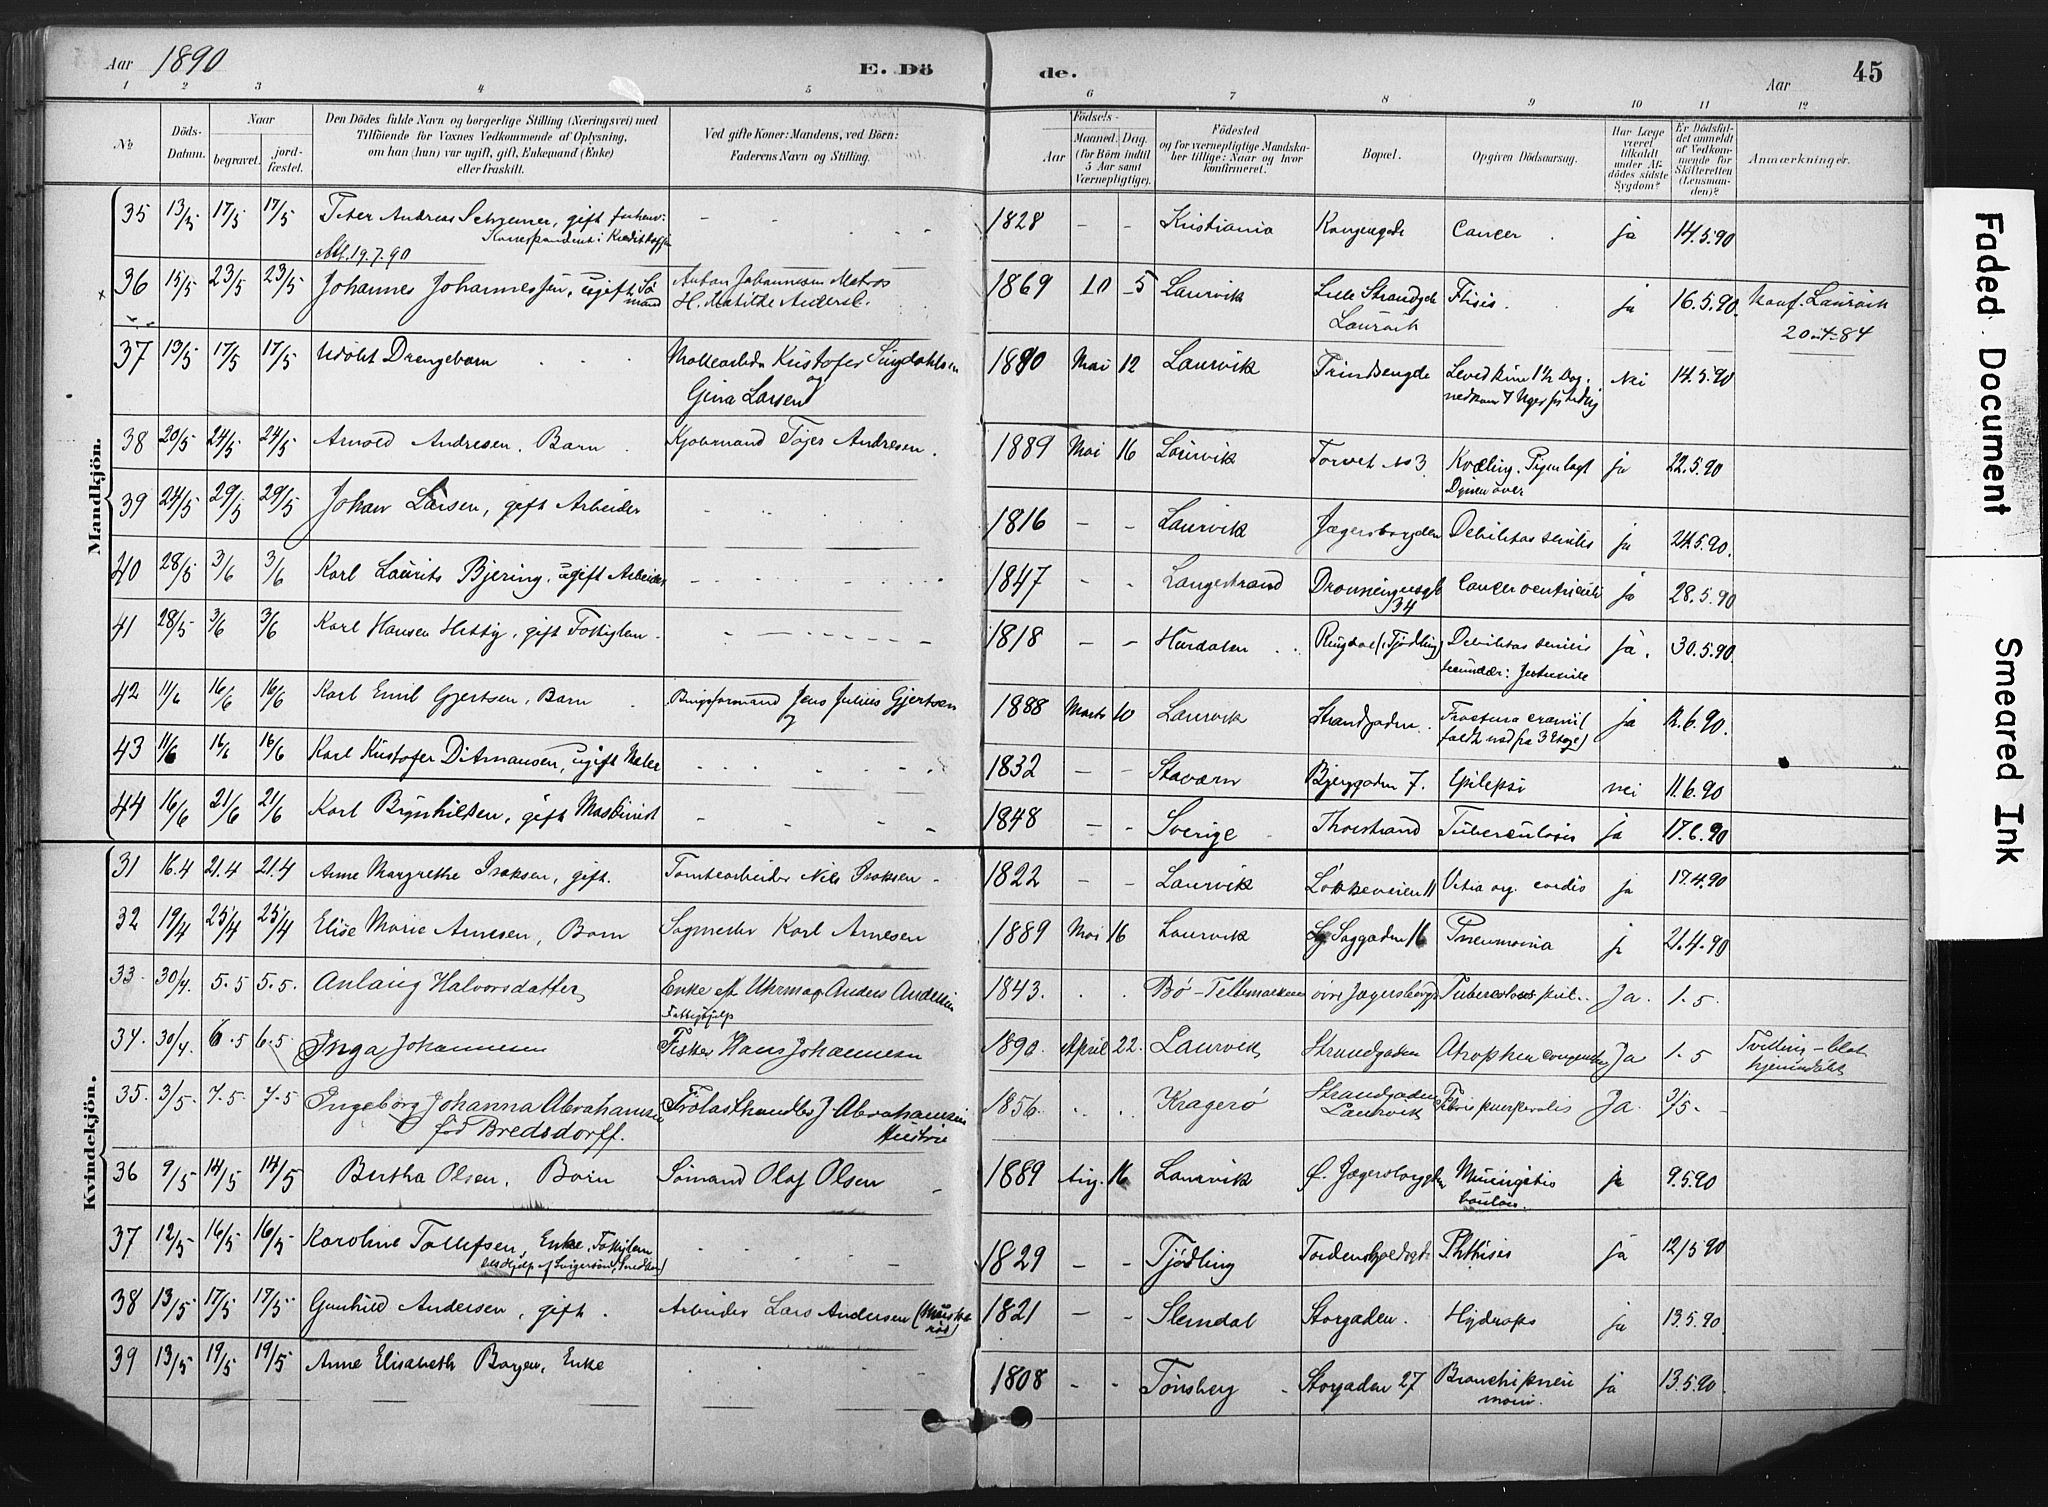 Aar 1890 E. Dö de. Aar 45
1 2 3 4 5 6 7 8 9 10 11 12
№
Döds-Datum.
Naar
begravet.
jordfæstet.
Den Dödes fulde Navn og borgerlige Stilling (Næringsvei) med
Tilföiende for Voxnes Vedkommende af Oplysning,
om han (hun) var ugift, gift, Enkemand (Enke)
eller fraskilt.
Ved gifte Koner: Mandens, ved Börn:
Faderens Navn og Stilling.
Födsels-
Aar
Maaned.
Dag.
(for Börn indtil
5 Aar samt
Værnepligtige).
Födested
og for værnepligtige Mandska-
ber tillige: Naar og hvor
konfirmeret.
Bopæl.
Opgiven Dödsaarsag.
Har Læge
været
tilkaldt
under Af-
dödes sidste
Sygdom?
Er Dödsfal-
det anmeldt
af Vedkom-
mende for
Skifteretten
(Lensman-
den)?
Anmærkninger.
Mandkjön.
35 13/5 17/5 17/5 Peter Andreas Schremer, gift - - - 1828 - - Kristiania Kongensgade Cancer ja 14.5.90
Att. 19.7.90
36 15/5 23/5 23/5 Johannes Johannessen, ugift Sömand Anton Johannessen Matros 1869 10 5 Laurvik Lille Strandgde Ftisis ja 16.5.90 Konf. Laurvik
H. Matilde Andersd. Laurvik 20-4-84
37 13/5 17/5 17/5 Udöbt Drengebarn Kristofer Singdahlsen 1890 Mai 12 Laurvik Trindsengde Leved kun 1½ Dag. Nei 14.5.90
og Gina Larsen
38 20/5 24/5 24/5 Arnold Andresen, Barn Kjøbmand Andresen. 1889 Mai 16 Laurvik Torvet No 3 ja 22.5.90
Dynen over
39 24/5 29/5 29/5 Johan Larsen, gift Arbeider 1816 - - Laurvik Jægersborgden Debilitas senilis ja 24.5.90.
40 28/5 3/6 3/6 Karl Laurits Bjering, ugift Arbeider 1847 - - Langestrand Dronningensgd Cancer ventriculi ja 28.5.90
34
41 28/5 3/6 3/6 Karl Hansen Hettig, gift Fattiglem 1818 - - Hurdalen (Tjødling) Debilitas senilis ja. 30.5.90
42 11/6 16/6 16/6 Karl Emil Gjertsen, Barn Jens Julius Gjertsen 1888 Marts 10 Laurvik Strandgaden Fractura cranii ja 12.6.90.
og (faldt ned fra 3 Etage)
43 11/6 16/6 16/6 Karl Kristofer Ditmansen, ugift Maler 1832 - - Staværn Bjerggaden 7. Epilepsi nei 11.6.90
44 16/6 21/6 21/6 Karl Brynhildsen, gift Maskinist 1848 - - Sverige Thorstrand Tuberculosis ja 17.6.90
Kvindekjön.
31 16.4 21.4 21.4 Anne Margrethe Isaksen, gift. Tomtearbeider Nils Isaksen 1822 - - Laurvik Løkkeveien 11 Vitia org. cordis ja 17.4.90
32 19/4 25/4 25/4 Elise Marie Arnesen, Barn Sagmester Karl Arnesen 1889 Mai 16 Laurvik Saggaden 16 Pneumonia ja 21.4.90
33. 30/4. 5.5 5.5. Anlaug Halvorsdatter Enke ef Uhrmag Anders Andersen 1843. . . Bø - Tellemarken øvre Jægersborgg Tuberculosis pul. Ja. 1.5.
Fattighjelp
34. 30/4. 6.5 6.5 Inga Johannesen Fisker Hans Johannesen 1890. April 22. Laurvik Strandgaden Atrophia congenita Ja 1.5 Tvilling - blot
hjemmedøbt
35. 3/5. 7.5 7.5 Ingeborg Johanna Abrahamsen J. Abrahamsens 1856. . . Kragerø Strandgaden Febris puerperalis Ja. 3/5.
fød Bredsdorff. Hustru Laurvik
36 9/5 14/5 14/5 Bertha Olsen. Barn Sömand Olaf Olsen 1889 Aug. 16 Laurvik Ø. Jægersborggden Meningitis ja 9.5.90
37 12/5 16/5 16/5 Karoline Tollefsen, Enke, Fattiglem 1829 - - Tjødling Tordenskjoldsgde Phthisis ja 12/5 90
38 13/5 17/5 17/5 Gunhild Andersen, gift. Arbeider Lars Andersen 1821 - - Slemdal Storgaden. Hydrops ja 13.5.90.
39 13/5 19/5 19/5 Anne Elisabeth Boysen, Enke 1808 - - Tönsberg Storgaden 27 Bronchipneu ja 13.5.90.
moni.
Faded Document
Smeared Ink